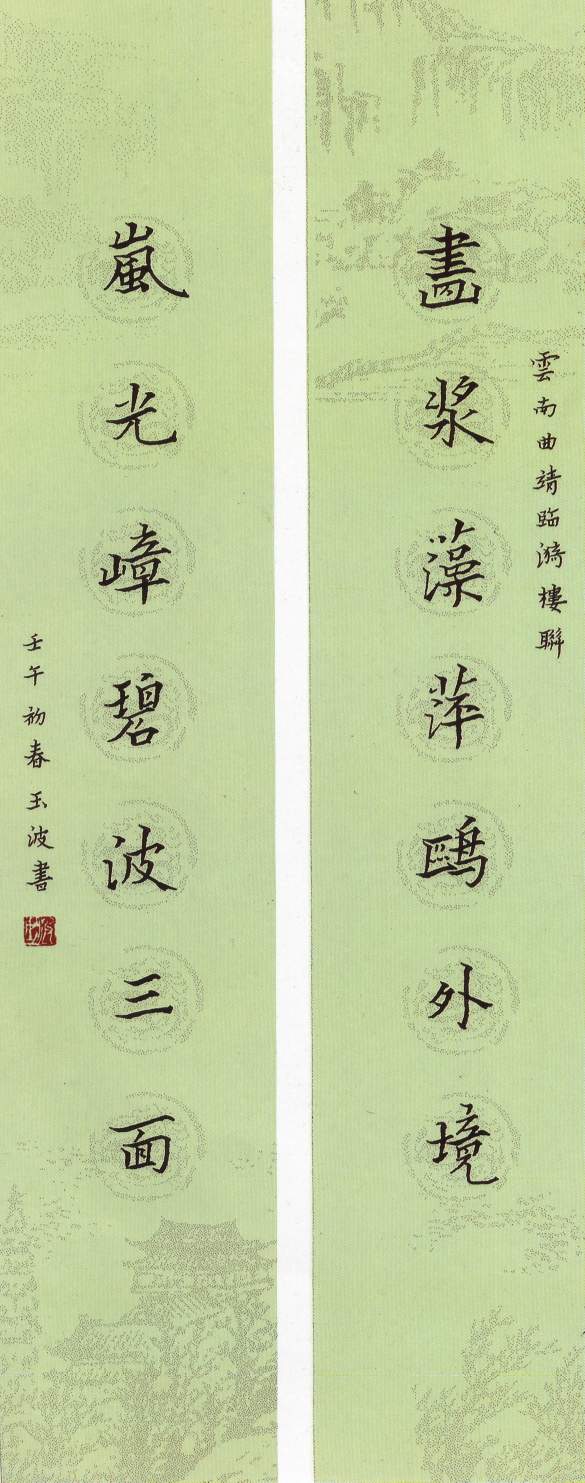 雲南曲靖臨漪樓聯
畵浆藻萍鷗外境
嵐光嶂碧波三面
壬午初春玉波書